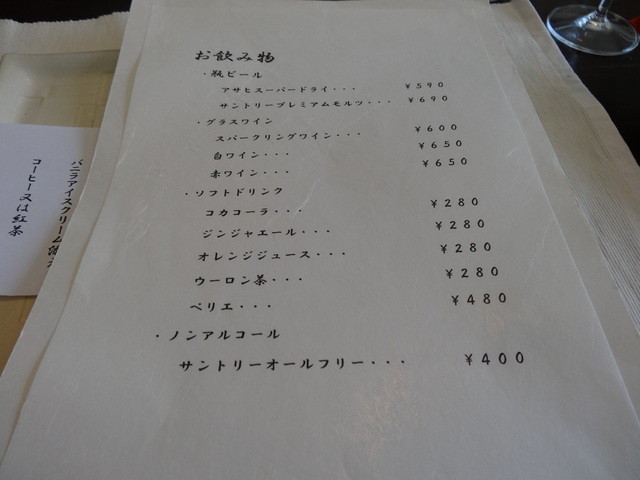 お飲み物
・瓶ビール
アサヒスーパードライ・・・ ￥590
サントリープレミアムモルツ・・・ ￥690
・グラスワイン
スパークリングワイン・・・ ￥600
白ワイン・・・ ￥650
赤ワイン・・・ ￥650
・ソフトドリンク
コカコーラ・・・ ￥280
ジンジャエール・・・ ￥280
オレンジジュース・・・ ￥280
ウーロン茶・・・ ￥280
ペリエ・・・ ￥480
・ノンアルコール
サントリーオールフリー・・・ ￥400
バニラアイスクリーム
コーヒー又は紅茶